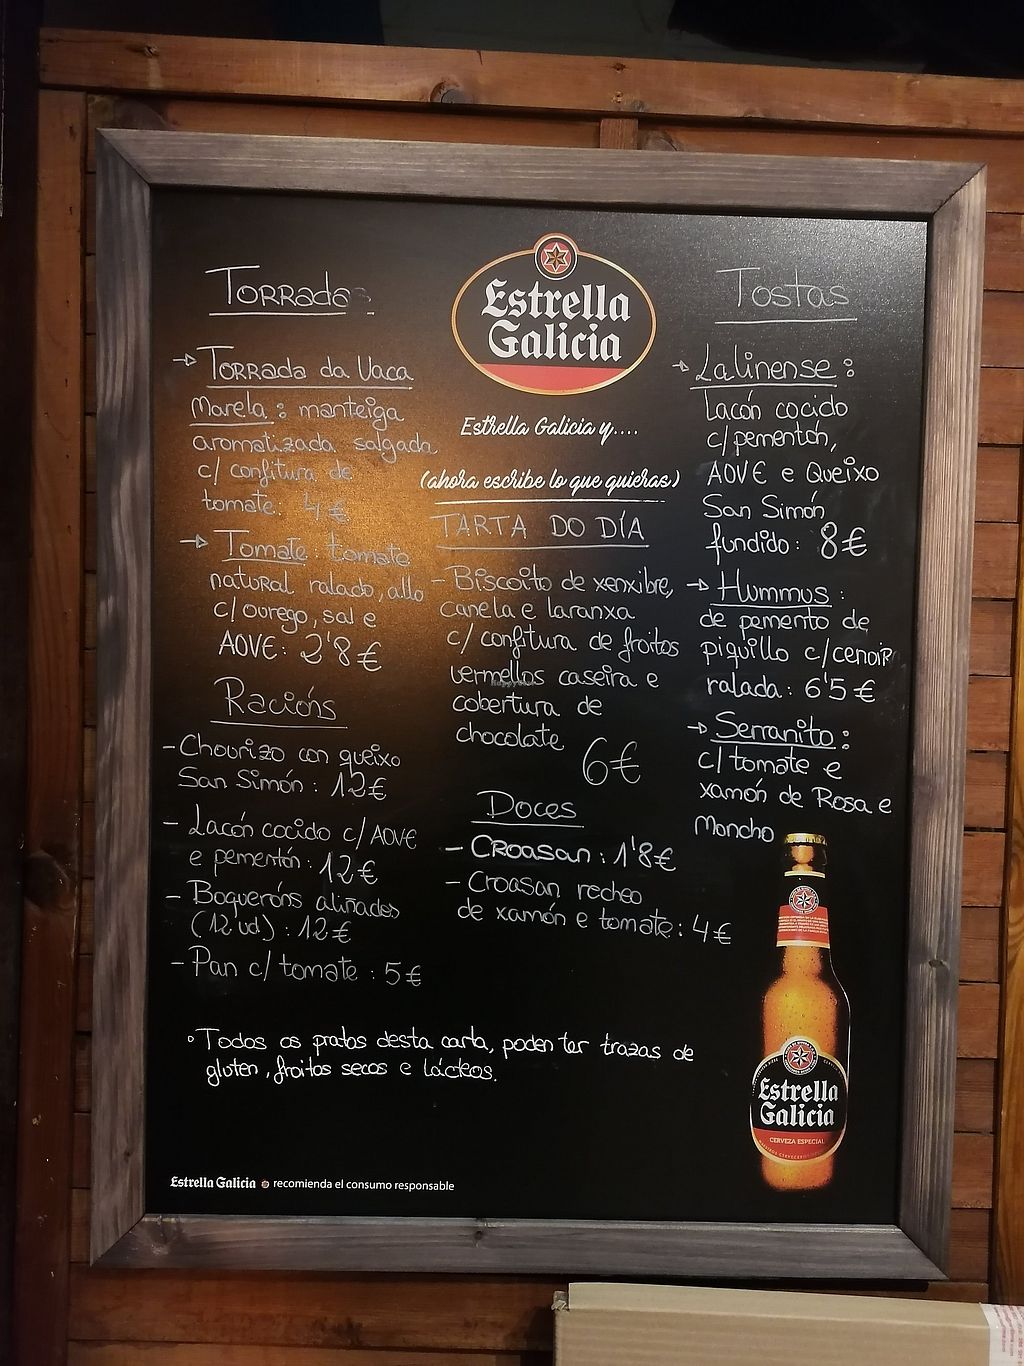 TORRADAS
→ TORRADA da Vaca
Marela : manteiga
aromatizada salgada
c/ confitura de
tomate: 4€
→ Tomate : tomate
natural ralado, allo
c/ ourego, sal e
AOVE: 2'8€
Racións
- Chourizo con queixo
San Simón : 12€
- Lacón cocido c/ AOVE
e pementón : 12€
- Boqueróns aliñados
(12 ud) : 12€
- Pan c/ tomate : 5€
Estrella
Galicia
Estrella Galicia y....
(ahora escribe lo que quieras)
TARTA DO DÍA
- Biscoito de xenxibre,
canela e laranxa
c/ confitura de froitos
vermellos caseira e
cobertura de
chocolate
6€
Doces
- CROASAN : 1'8€
- Croasan recheo
de xamón e tomate : 4€
Tostas
→ Lalinense :
Lacón cocido
c/ pementón,
AOVE e Queixo
San Simón
fundido : 8€
→ Hummus :
de pemento de
piquillo c/ cenoira
ralada : 6'5€
→ Serranito :
c/ tomate e
xamón de Rosa e
Moncho
° Todos os pratos desta carta, poden ter trazas de
gluten, froitos secos e lácteos.
Estrella
Galicia
CERVEZA ESPECIAL
Estrella Galicia recomienda el consumo responsable